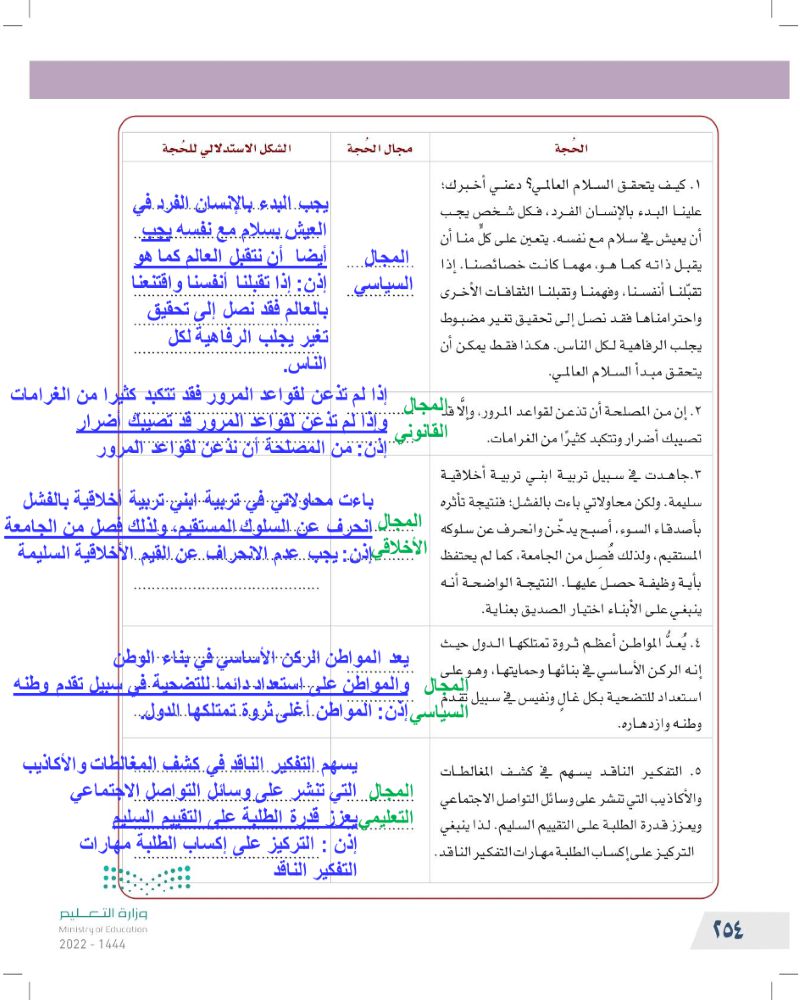 الحُجة
مجال الحُجة
الشكل الاستدلالي للحُجة
١. كيف يتحقق السلام العالمي؟ دعني أخبرك؛
علينا البدء بالإنسان الفرد، فكل شخص يجب
أن يعيش في سلام مع نفسه. يتعين على كلٍّ منا أن
يقبل ذاته كما هو، مهما كانت خصائصنا. إذا
تقبّلنا أنفسنا، وفهمنا وتقبلنا الثقافات الأخرى
واحترامناها فقد نصل إلى تحقيق تغير مضبوط
يجلب الرفاهية لكل الناس. هكذا فقط يمكن أن
يتحقق مبدأ السلام العالمي.
المجال
السياسي
يجب البدء بالإنسان الفرد في
العيش بسلام مع نفسه يجب
أيضا أن نتقبل العالم كما هو
إذن: إذا تقبلنا أنفسنا واقتنعنا
بالعالم فقد نصل إلى تحقيق
تغير يجلب الرفاهية لكل
الناس.
٢. إن من المصلحة أن تذعن لقواعد المرور، وإلَّا قد
تصيبك أضرار وتتكبد كثيرًا من الغرامات.
المجال
القانوني
إذا لم تذعن لقواعد المرور فقد تتكبد كثيرا من الغرامات
وإذا لم تذعن لقواعد المرور قد تصيبك أضرار
إذن: من المصلحة أن نذعن لقواعد المرور
٣. جاهدت في سبيل تربية ابني تربية أخلاقية
سليمة. ولكن محاولاتي باءت بالفشل؛ فنتيجة تأثره
بأصدقاء السوء، أصبح يدخّن وانحرف عن سلوكه
المستقيم، ولذلك فُصِل من الجامعة. كما لم يحتفظ
بأية وظيفة حصل عليها. النتيجة الواضحة أنه
ينبغي على الأبناء اختيار الصديق بعناية.
المجال
الأخلاقي
باءت محاولاتي في تربية ابني تربية أخلاقية بالفشل
انحرف عن السلوك المستقيم، ولذلك فصل من الجامعة
إذن: يجب عدم الانحراف عن القيم الأخلاقية السليمة
٤. يُعدُّ المواطن أعظم ثروة تمتلكها الدول حيث
إنه الركن الأساسي في بنائها وحمايتها، وهو على
استعداد للتضحية بكل غالٍ ونفيس في سبيل تقدم
وطنه وازدهاره.
المجال
السياسي
يعد المواطن الركن الأساسي في بناء الوطن
والمواطن على استعداد دائما للتضحية في سبيل تقدم وطنه
إذن: المواطن أغلى ثروة تمتلكها الدول.
٥. التفكير الناقد يسهم في كشف المغالطات
والأكاذيب التي تنشر على وسائل التواصل الاجتماعي
ويعزز قدرة الطلبة على التقييم السليم. لذا ينبغي
التركيز على إكساب الطلبة مهارات التفكير الناقد.
المجال
التعليمي
يسهم التفكير الناقد في كشف المغالطات والأكاذيب
التي تنشر على وسائل التواصل الاجتماعي
يعزز قدرة الطلبة على التقييم السليم
إذن : التركيز على إكساب الطلبة مهارات
التفكير الناقد
وزارة التعليم
Ministry of Education
2022 - 1444
٢٥٤